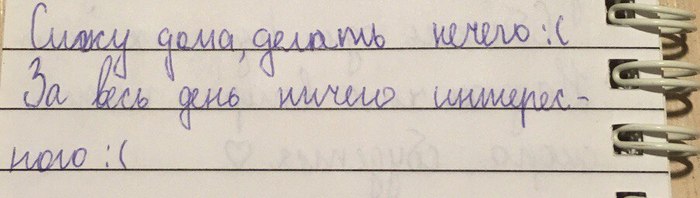 Сижу дома, делать нечего :(
За весь день ничего интерес-
ного :(